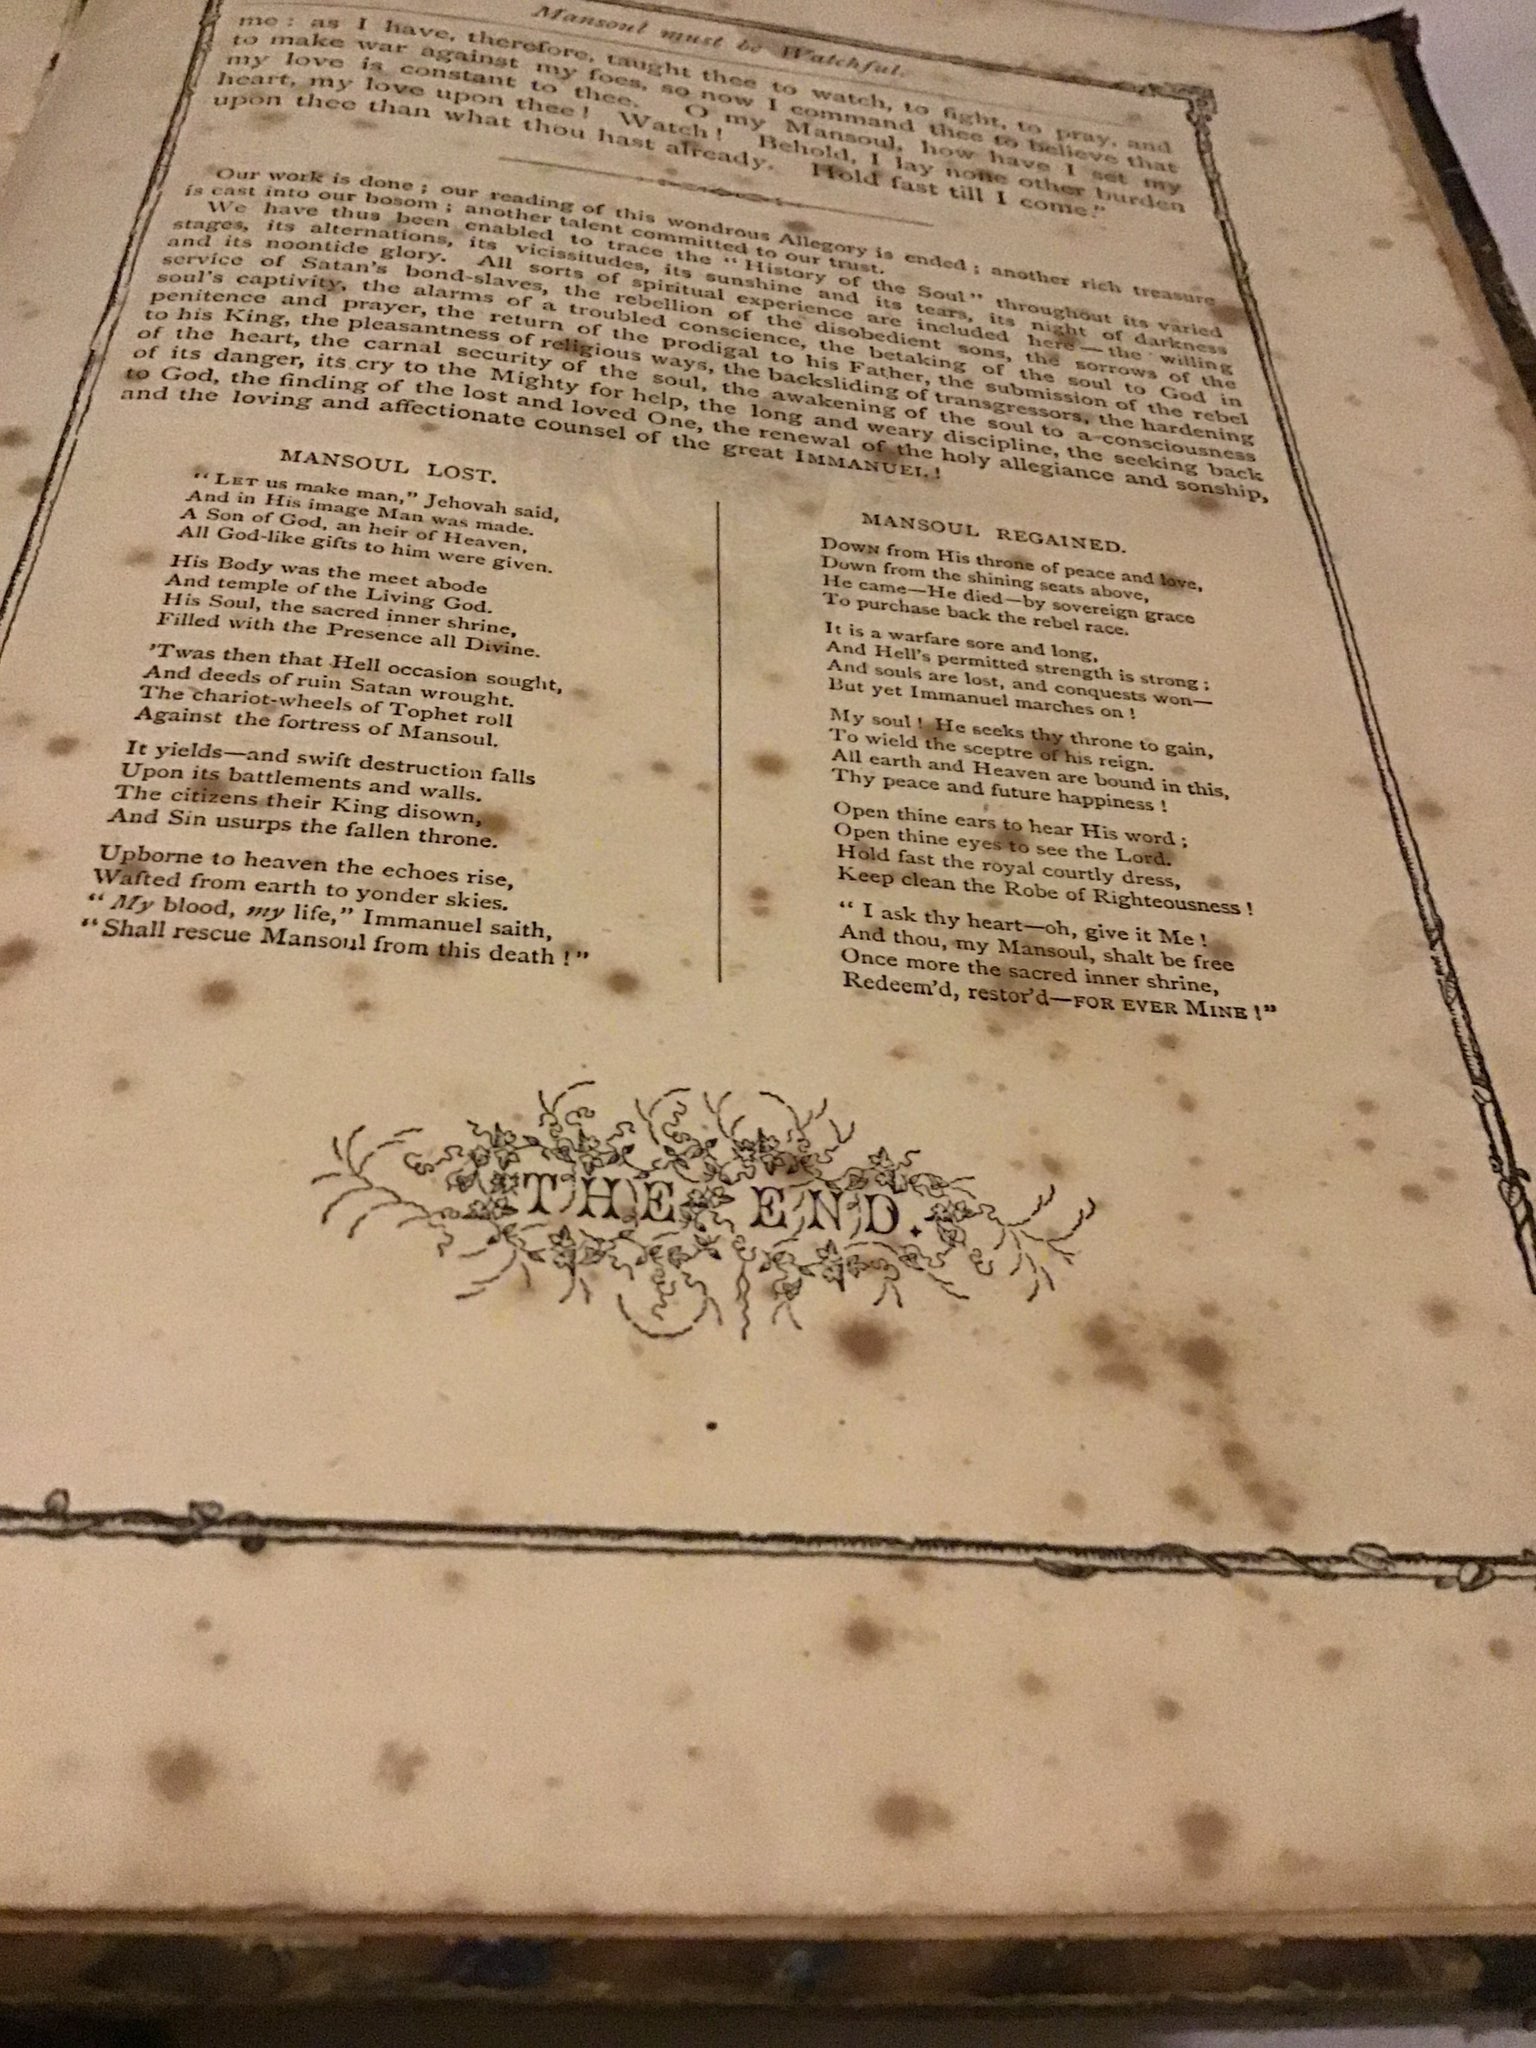 Mansoul must be Watchful.
me: as I have, therefore, taught thee to watch, to fight, to pray, and
to make war against my foes, so now I command thee to believe that
my love is constant to thee. O my Mansoul, how have I set my
heart, my love upon thee! Watch! Behold, I lay none other burden
upon thee than what thou hast already. Hold fast till I come."
Our work is done; our reading of this wondrous Allegory is ended; another rich treasure
is cast into our bosom; another talent committed to our trust.
We have thus been enabled to trace the "History of the Soul" throughout its varied
stages, its alternations, its vicissitudes, its sunshine and its tears, its night of darkness
and its noontide glory. All sorts of spiritual experience are included here—the willing
service of Satan's bond-slaves, the rebellion of the disobedient sons, the sorrows of the
soul's captivity, the alarms of a troubled conscience, the betaking of the soul to God in
penitence and prayer, the return of the prodigal to his Father, the submission of the rebel
to his King, the pleasantness of religious ways, the backsliding of transgressors, the hardening
of the heart, the carnal security of the soul, the awakening of the soul to a consciousness
of its danger, its cry to the Mighty for help, the long and weary discipline, the seeking back
to God, the finding of the lost and loved One, the renewal of the holy allegiance and sonship,
and the loving and affectionate counsel of the great IMMANUEL!
MANSOUL LOST.
"LET us make man," Jehovah said,
And in His image Man was made.
A Son of God, an heir of Heaven,
All God-like gifts to him were given.
His Body was the meet abode
And temple of the Living God.
His Soul, the sacred inner shrine,
Filled with the Presence all Divine.
'Twas then that Hell occasion sought,
And deeds of ruin Satan wrought.
The chariot-wheels of Tophet roll
Against the fortress of Mansoul.
It yields—and swift destruction falls
Upon its battlements and walls.
The citizens their King disown,
And Sin usurps the fallen throne.
Upborne to heaven the echoes rise,
Wafted from earth to yonder skies.
"My blood, my life," Immanuel saith,
"Shall rescue Mansoul from this death!"
MANSOUL REGAINED.
DOWN from His throne of peace and love,
Down from the shining seats above,
He came—He died—by sovereign grace
To purchase back the rebel race.
It is a warfare sore and long,
And Hell's permitted strength is strong;
And souls are lost, and conquests won—
But yet Immanuel marches on!
My soul! He seeks thy throne to gain,
To wield the sceptre of his reign.
All earth and Heaven are bound in this,
Thy peace and future happiness!
Open thine ears to hear His word;
Open thine eyes to see the Lord.
Hold fast the royal courtly dress,
Keep clean the Robe of Righteousness!
"I ask thy heart—oh, give it Me!
And thou, my Mansoul, shalt be free
Once more the sacred inner shrine,
Redeem'd, restor'd—FOR EVER MINE!"
THE END.